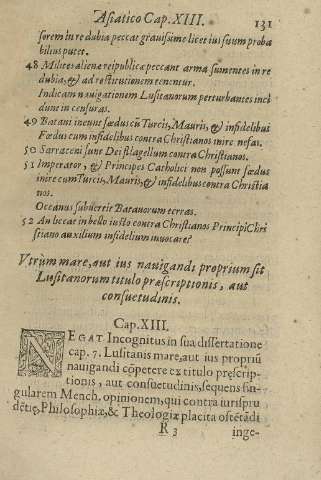 Asiatico Cap. XIII. 131
sorem in re dubia peccat grauissime licet ius suum proba
bilius putet.
48 Milites alienæ reipublicæ peccant arma sumentes in re
dubia, & ad restitutionem tenentur.
Indicam nauigationem Lusitanorum perturbantes inci
dunt in censuras.
49 Bataui ineunt fœdus cũ Turcis, Mauris, & infidelibus
Fœdus cum infidelibus contra Christianos inire nefas.
50 Sarraceni sunt Dei flagellum contra Christianos.
51 Imperator, & Principes Catholici non possunt fœdus
inire cum Turcis, Mauris, & infidelibus contra Christia
nos.
Oceanus subuertit Batauorum terras.
52 An liceat in bello iusto contra Christianos Principi Chri
stiano auxilium infidelium inuocare?
Vtrùm mare, aut ius nauigandi proprium sit
Lusitanorum titulo præscriptionis, aut
consuetudinis.
Cap. XIII.
NEGAT Incognitus in sua dissertatione
cap. 7. Lusitanis mare, aut ius propriũ
nauigandi cõpetere ex titulo præscrip-
tionis, aut consuetudinis, sequens sin-
gularem Mench. opinionem, qui contra iurispru
dẽtię, Philosophiæ, & Theologiæ placita ostẽtãdi
R 3 inge-